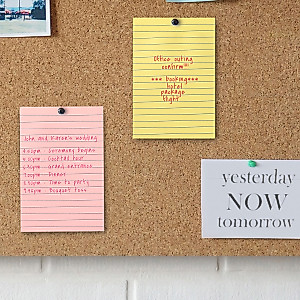 Office outing
confirm!!!
*** Booking***
hotel
package
flight
John and Karen's wedding
4:00pm - Ceremony begins
5:00pm - Cocktail hour
6:00pm - Grand entrance
7:00pm - Dinner
8:00pm - Time to party
9:00pm - Bouquet toss
yesterday
NOW
tomorrow